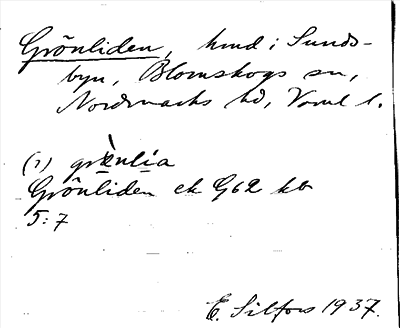 Grönliden, hmd i Sunds-
byn, Blomskogs sn,
Nordmarks hd, Vrml l.
(1) grönlia
Grönliden ek G62 kb
5:7
E. Silfors 1937.